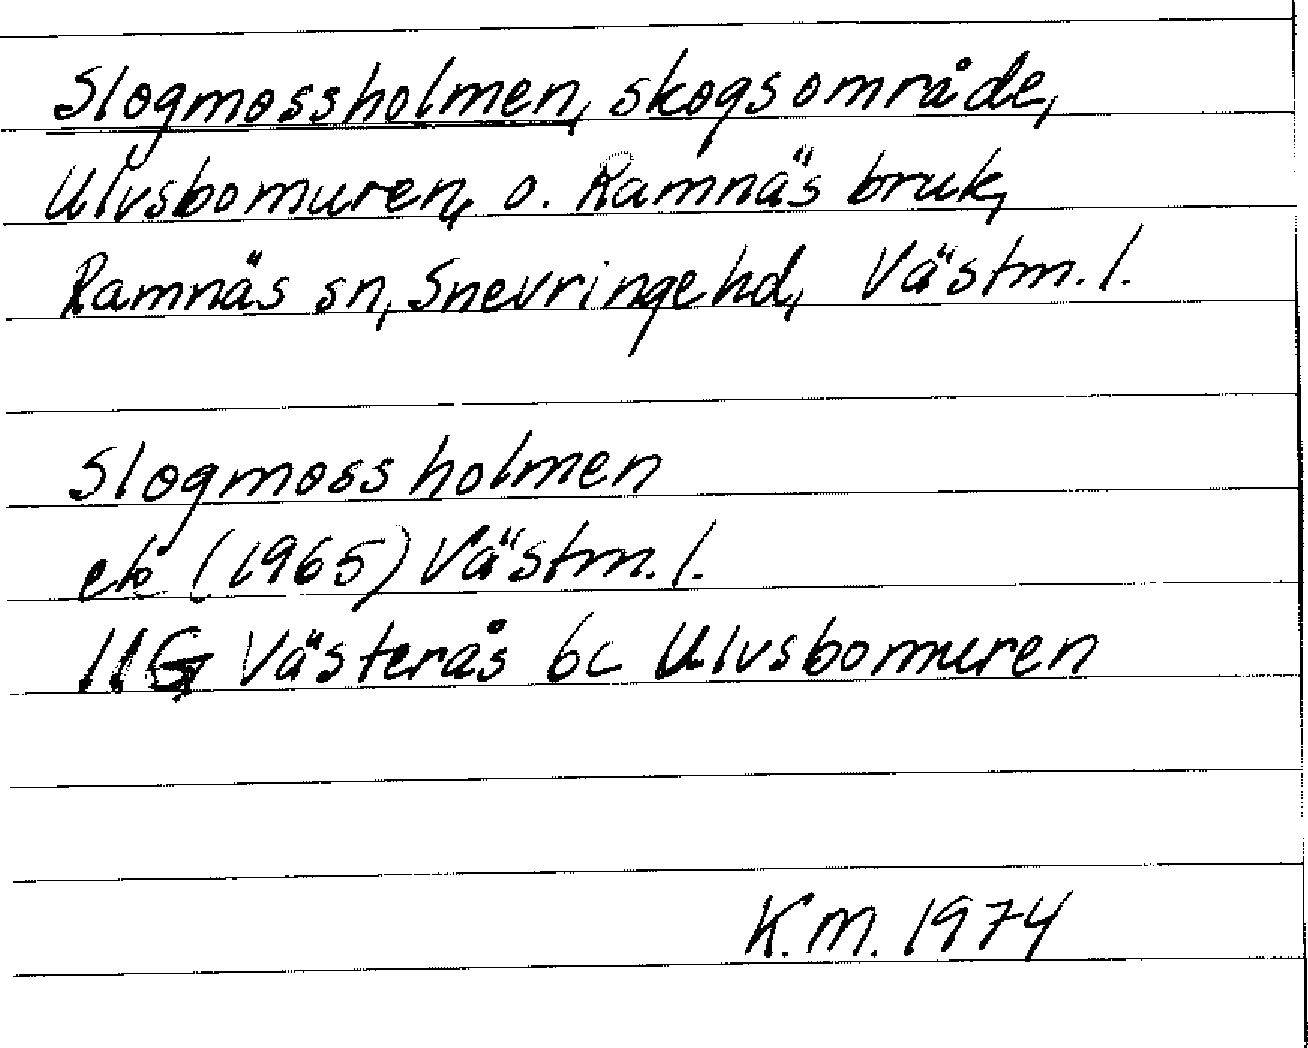 Slogmossholmen, skogsområde,
Ulvsbomuren, o. Ramnäs bruk,
Ramnäs sn, Snevringe hd, Västm. l.
Slogmossholmen
ek (1965) Västm. l.
11G Västerås 6c Ulvsbomuren
K.M. 1974